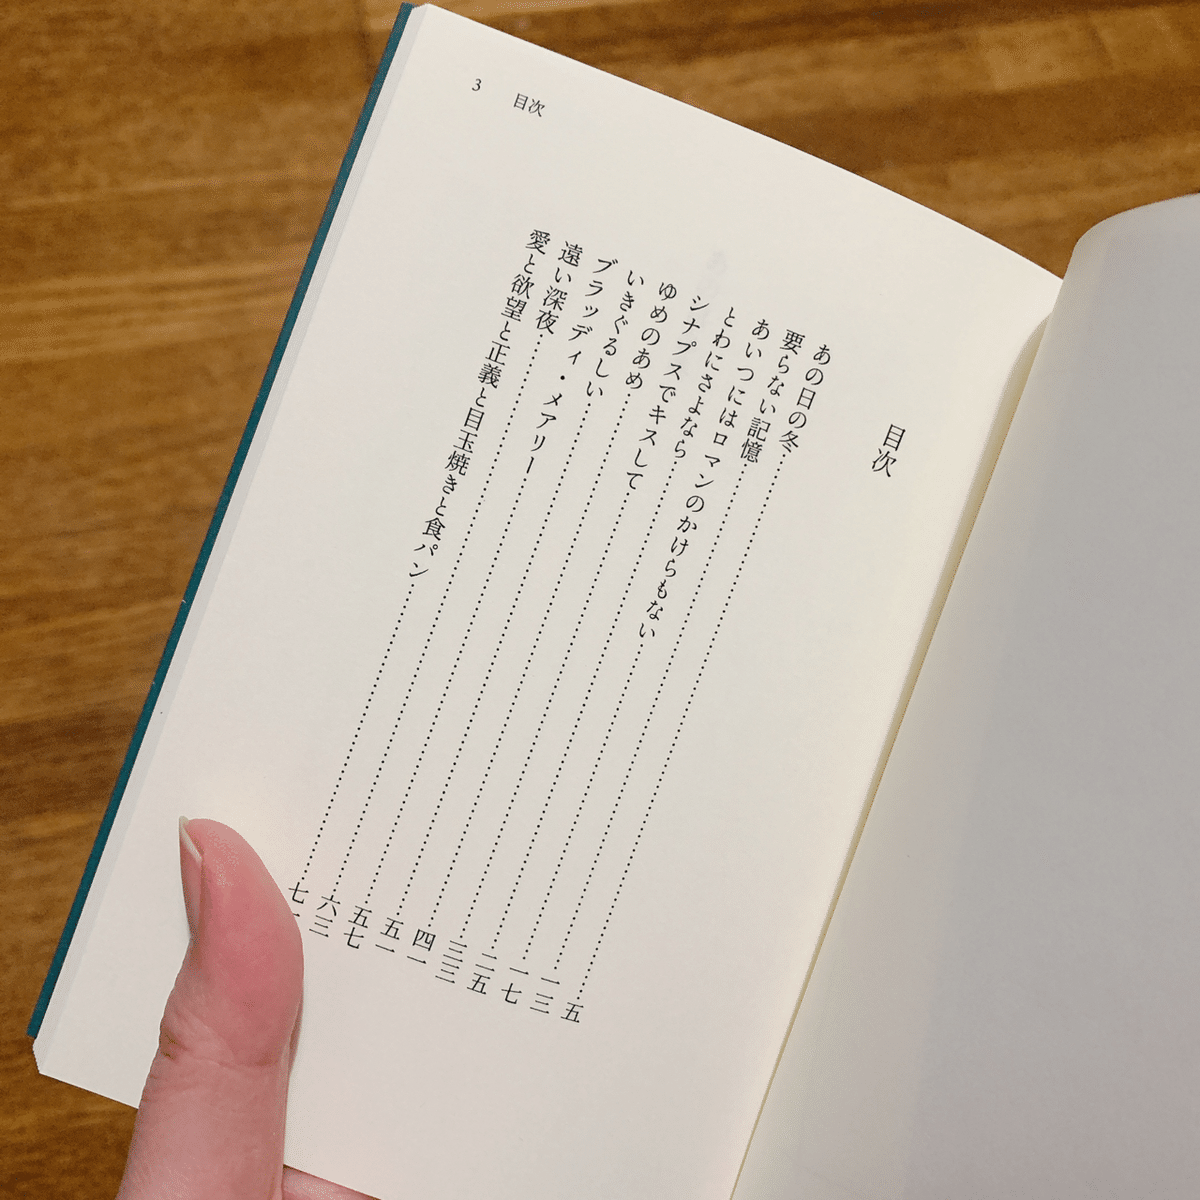 3 目次
目次
あの日の冬……五
要らない記憶……一三
あいつにはロマンのかけらもない……一七
とわにさよなら……二五
シナプスでキスして……三三
ゆめのあめ……四一
いきぐるしい……五一
ブラッディ・メアリー……五七
遠い深夜……六三
愛と欲望と正義と目玉焼きと食パン……七